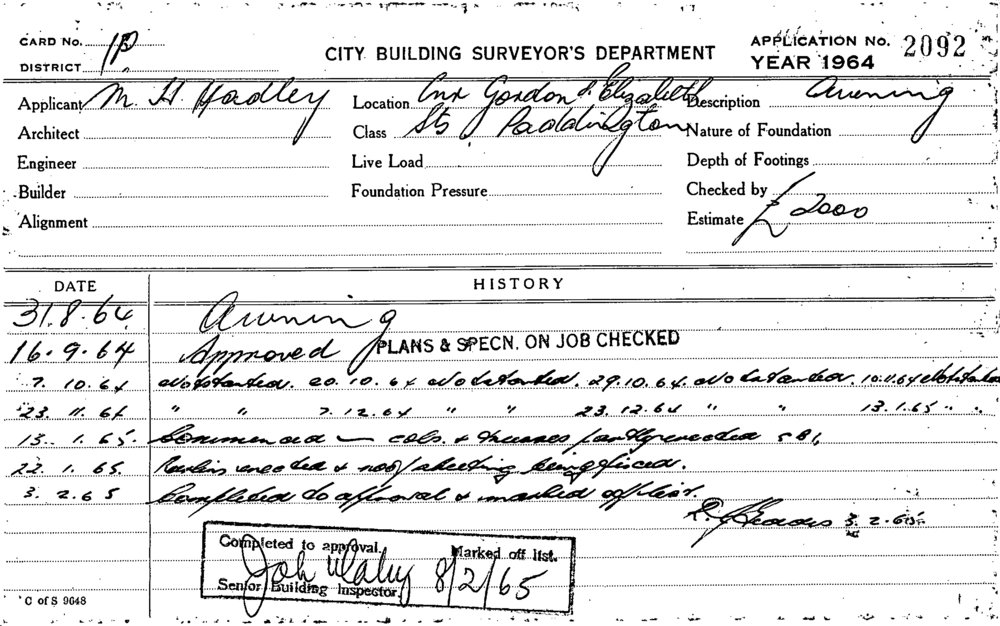 CARD No. 1B
DISTRICT
CITY BUILDING SURVEYOR'S DEPARTMENT
APPLICATION No. 2092
YEAR 1964
Applicant M. H Hadley
Location Cnr Gordon & Elizabeth
Description Awening
Architect
Class Sts Paddington
Nature of Foundation
Engineer
Live Load
Depth of Footings
Builder
Foundation Pressure
Checked by
Alignment
Estimate £2000
DATE HISTORY
31.8.64 Awening
16.9.64 Approved PLANS & SPECN. ON JOB CHECKED
7.10.64 Not started. 20.10.64 Not started. 29.10.64. Not started. 10.11.64 Not started
23.11.64 " " 7.12.64 " " 23.12.64 " " 13.1.65 " "
13.1.65. Commenced — cols. & trusses partly erected
22.1.65 Purlins erected & roof sheeting being fixed.
3.2.65 Completed to approval & marked off list.
3.2.65.
Completed to approval. Marked off list.
8/2/65
Senior Building Inspector.
C of S 9648